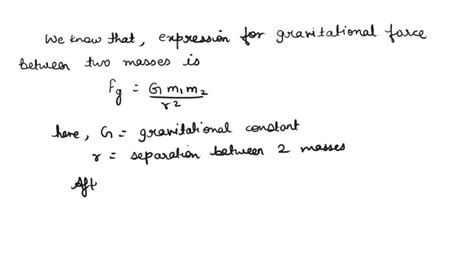 We know that, expression for gravitational force
between two masses is
Fg = G m1 m2 / r²
here, G = gravitational constant
r = separation between 2 masses
Aft